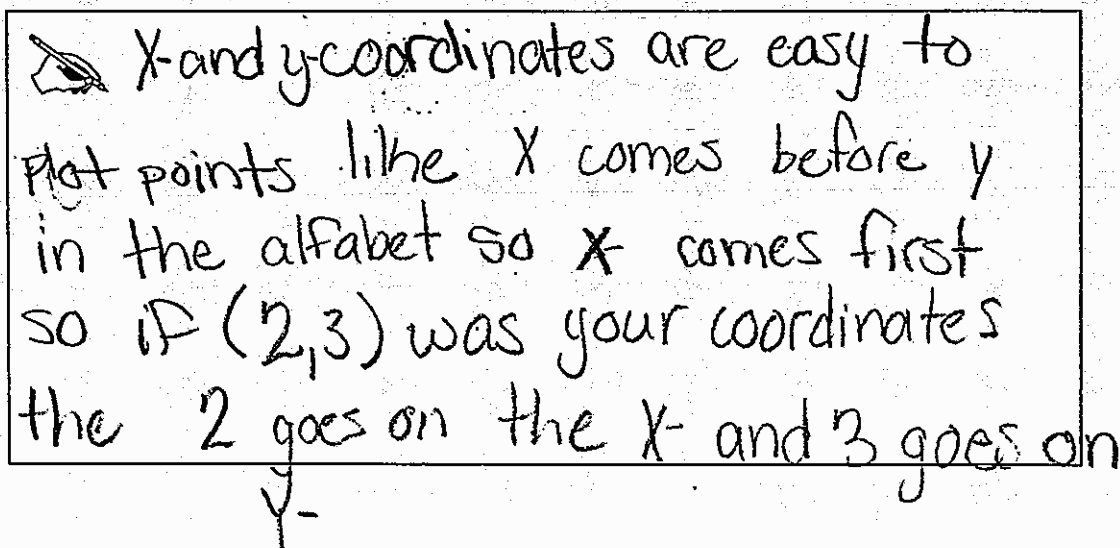 X-and y-coordinates are easy to
plot points like X comes before y
in the alfabet so X- comes first
so if (2,3) was your coordinates
the 2 goes on the X- and 3 goes on
y-